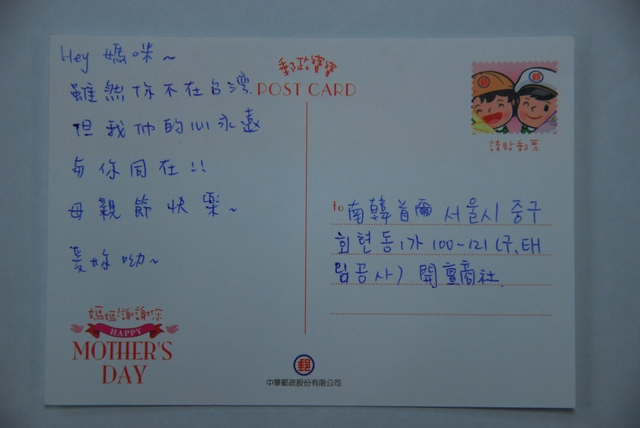 Hey 媽咪~
雖然你不在台灣
但我們的心永遠
與你同在!!
母親節快樂~
愛妳呦~
媽媽!謝謝您
HAPPY
MOTHER'S
DAY
郵政寶寶
POST CARD
請貼郵票
to 南韓首爾 서울시 중구
회현동1가 100-121 (구.태
림공사) 開重商社
中華郵政股份有限公司